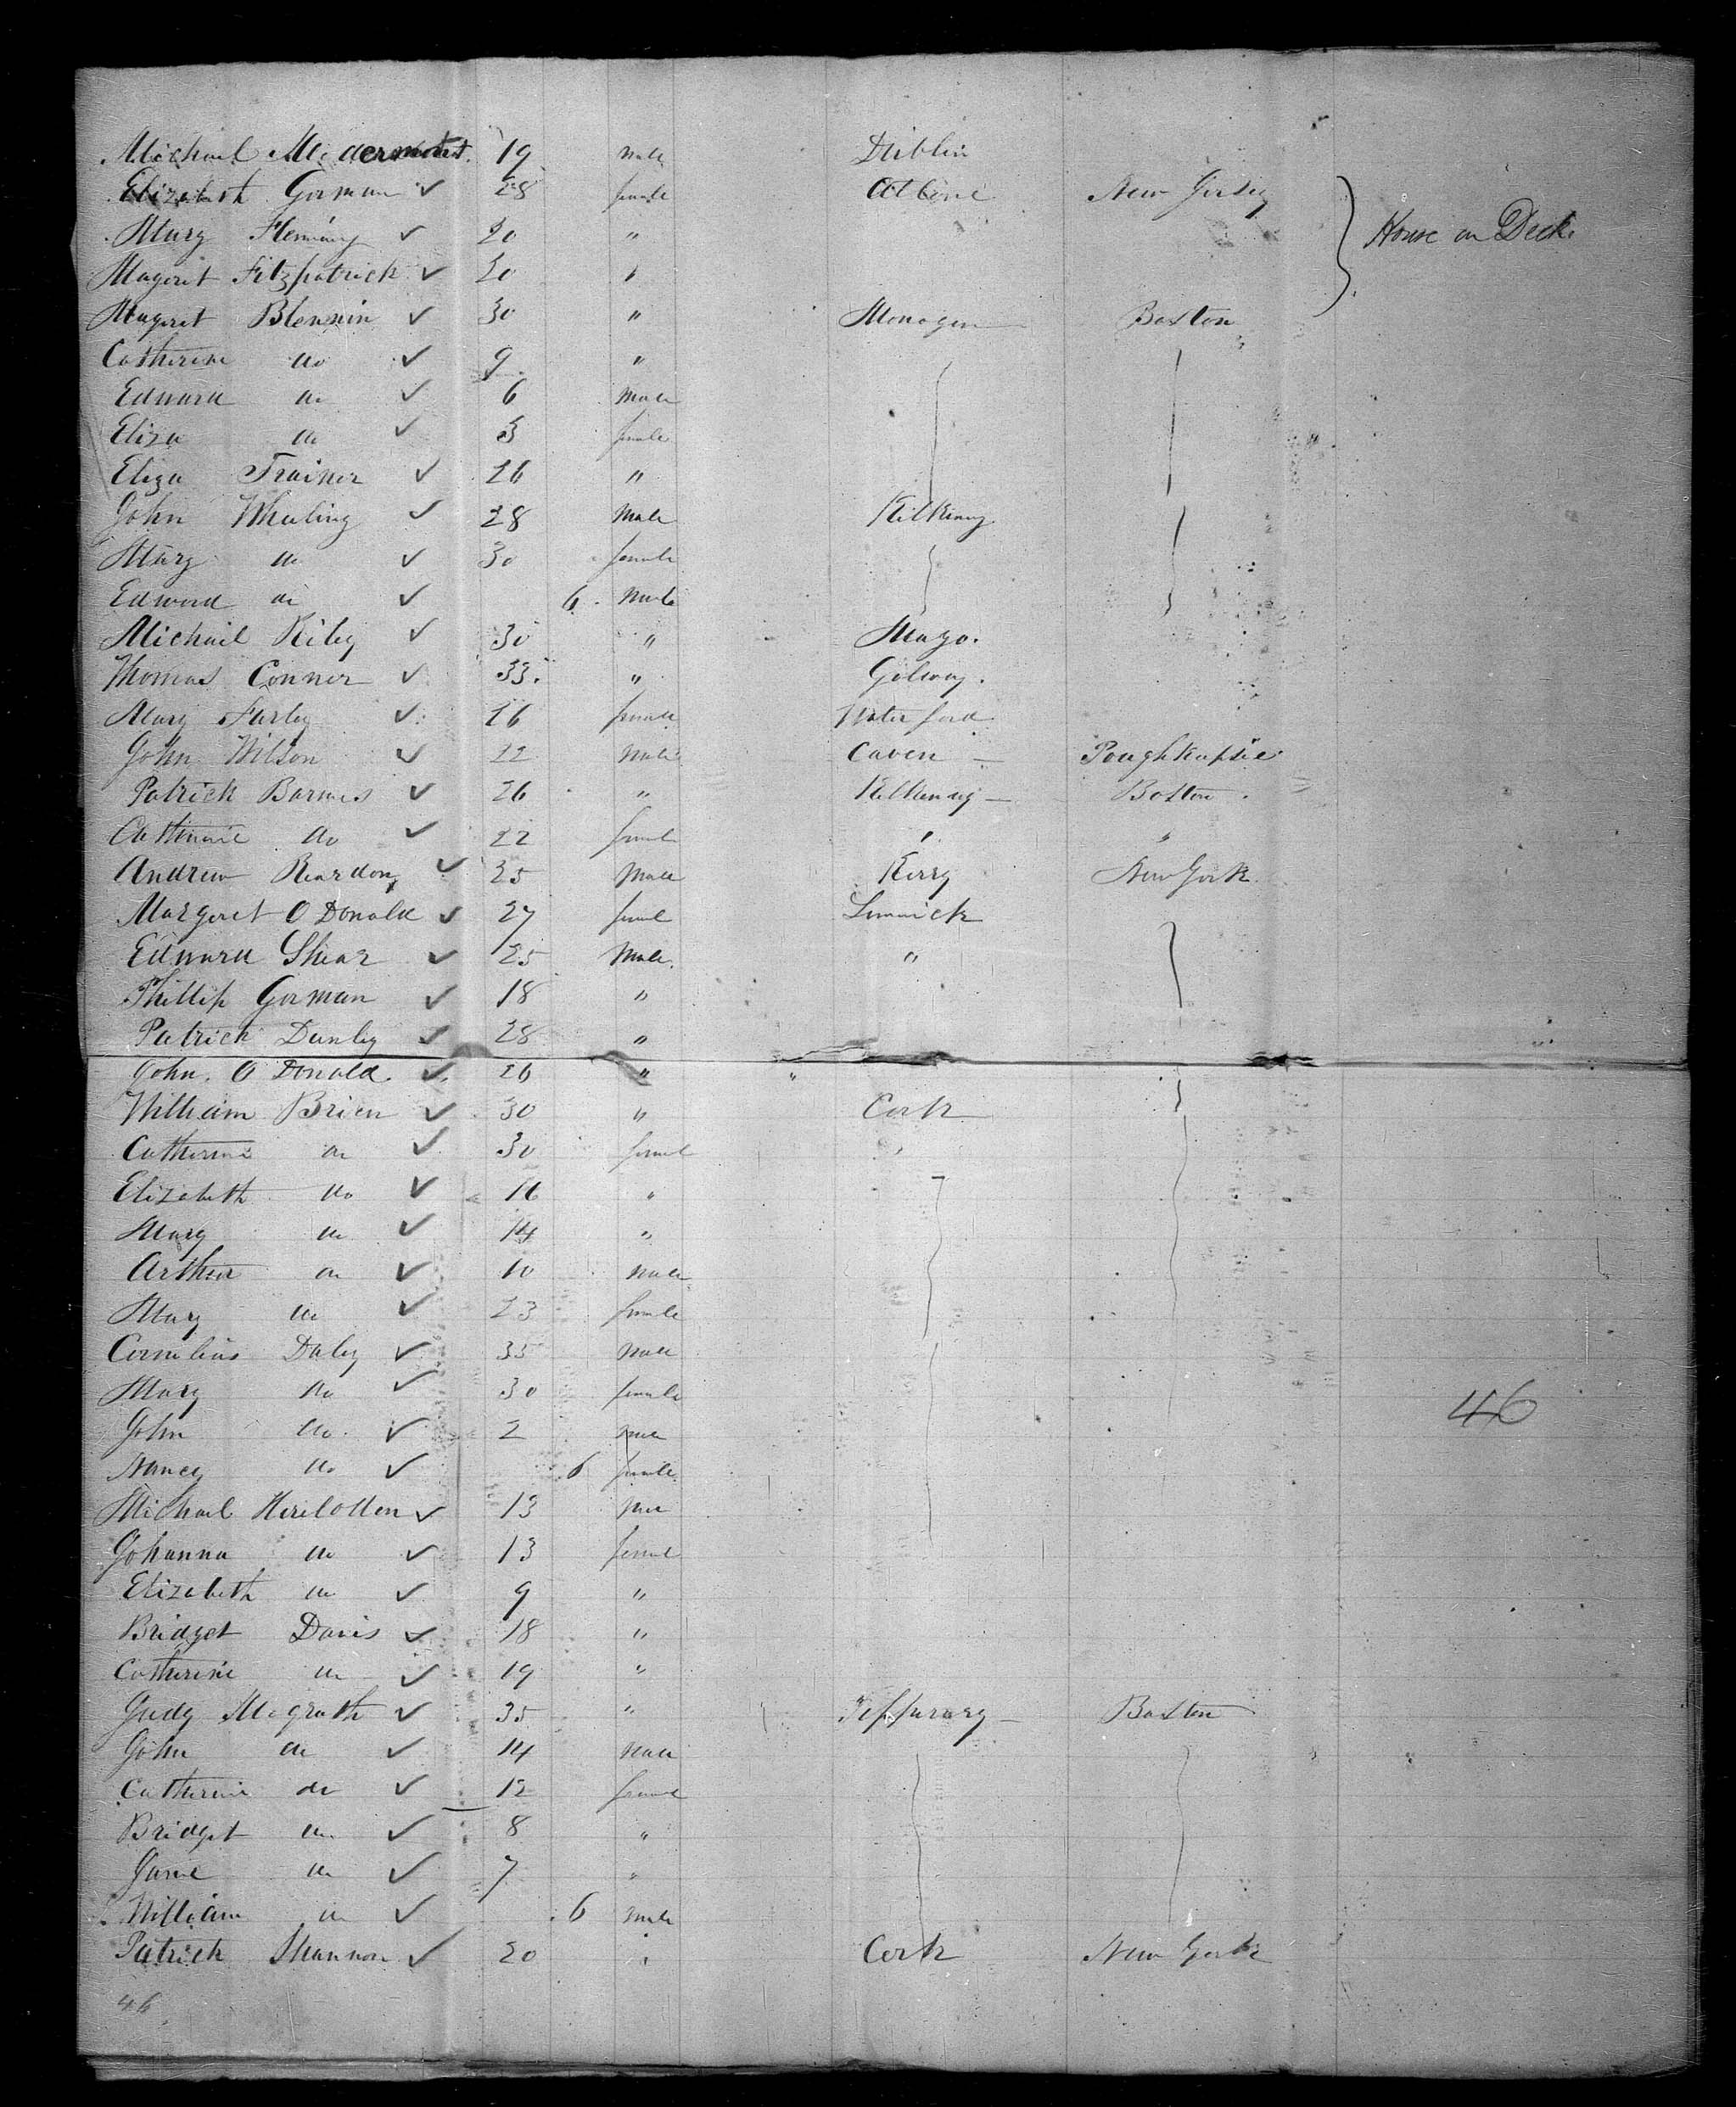 Michael McDermott 19 Male Dublin
Elizabeth Gorman ✓ 28 female Athlone New Jersey
Mary Fleming ✓ 20 " House on Deck
Magerit Fitzpatrick ✓ 20 "
Mageret Blennin ✓ 30 " Monogan Boston
Catherine do ✓ 9 "
Edward do ✓ 6 Male
Eliza do ✓ 3 female
Eliza Trainer ✓ 26 "
John Wheeling ✓ 28 Male Kilkenny
Mary do ✓ 30 female
Edward do ✓ 6 Male
Michael Riley ✓ 30 " Mayo.
Thomas Conner ✓ 33. " Galway.
Mary Farley ✓ 26 female Waterford
John Wilson ✓ 22 Male Caven — Poughkepsie
Patrick Barnes ✓ 26 " Kilkenny — Boston
Catherine do ✓ 22 female " "
Andrew Reardon ✓ 25 Male Kerry New York
Margeret O Donald ✓ 27 female Limrick
Edward Shear ✓ 25 Male "
Phillip Gorman ✓ 18 "
Patrick Dunley ✓ 28 "
John O Donald ✓ 26 " "
William Brien ✓ 30 " Cork
Catherine do ✓ 30 female "
Elizabeth do ✓ 16 "
Mary do ✓ 14 "
Arthur do ✓ 10 Male
Mary do ✓ 23 female
Cornelius Daley ✓ 35 Male
Mary do ✓ 30 female
John do ✓ 2 Male
46
Nancy do ✓ 6 female
Michael ✓ 13 Male
Johanna do ✓ 13 female
Elizabeth do ✓ 9 "
Bridget Davis ✓ 18 "
Catherine do ✓ 19 "
Judy Mcgrath ✓ 35 " Tipperary — Boston
John do ✓ 14 Male
Catherine do ✓ 12 female
Bridget do ✓ 8 "
Jane do ✓ 7 "
William do ✓ 6 Male
Patrick Shannon ✓ 20 " Cork New York
46